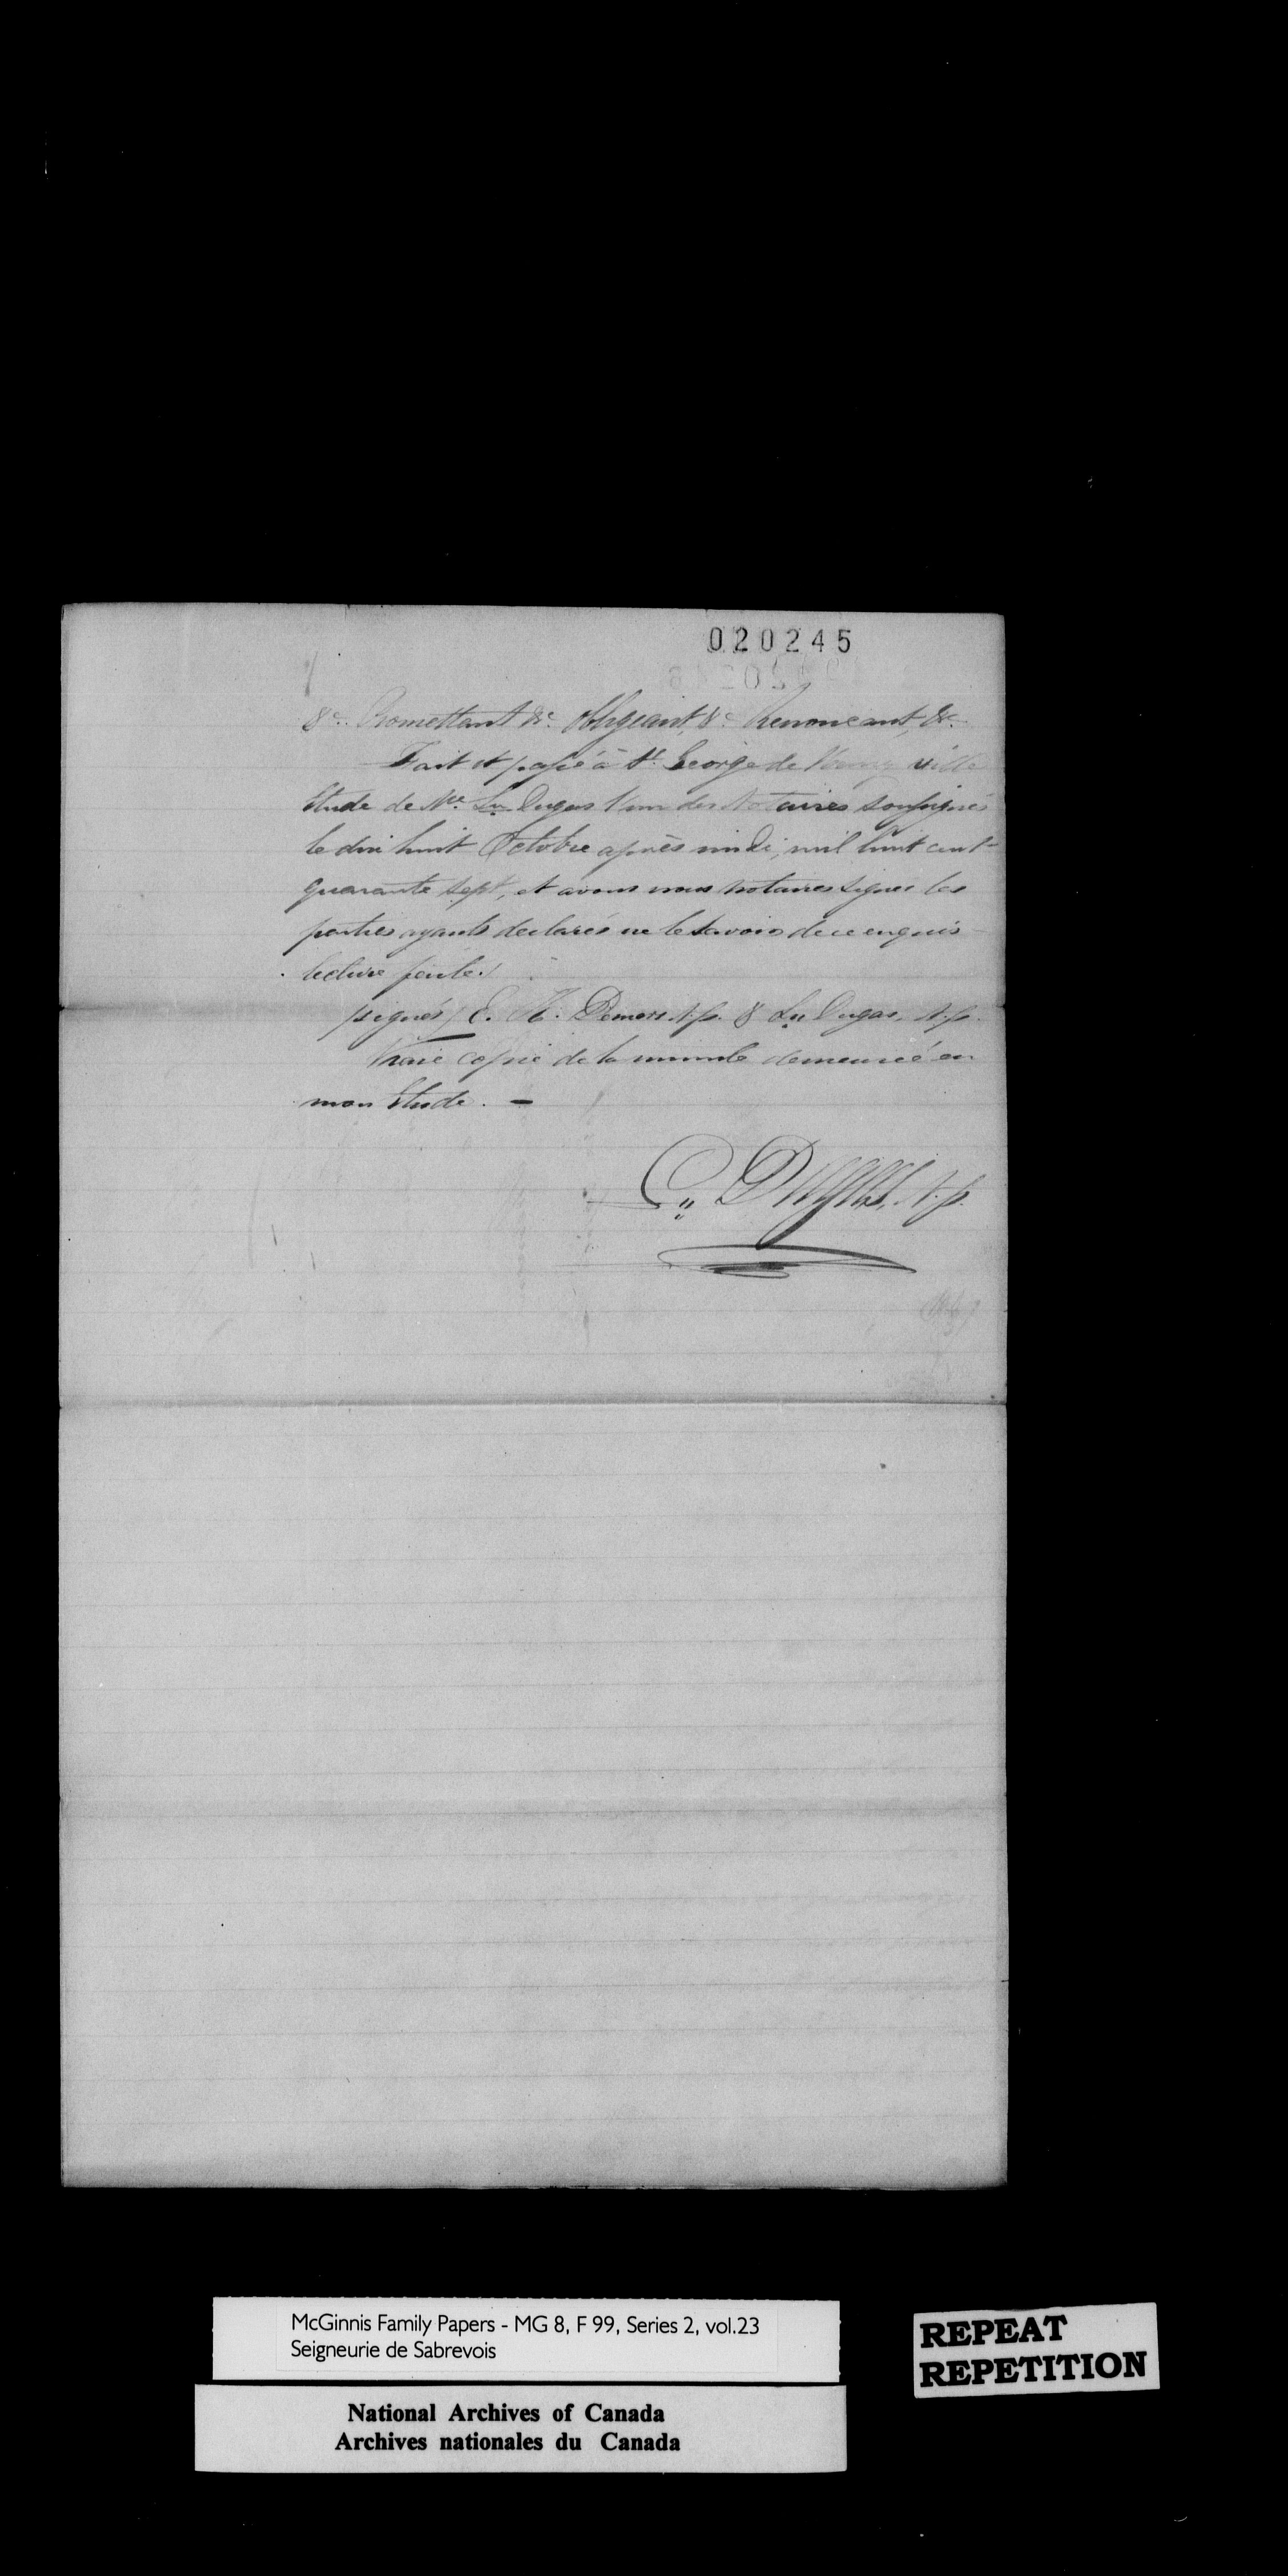 020245
&c. Promettant &c. Obligeant, &c. Renoncant, &c.
Fait et passé à St. George de Henry ville
Etude de Me. Ln Dugas l'un des Notaires soussignés
le dix huit Octobre après midi, mil huit cent
quarante sept, et avons nous notaires signé les
parties ayants declarés ne le savoir de ce enquis
lecture faite.
signés / E. R. Demers N.p. & Ln Dugas, N.p.
Vraie copie de la minute demeurée en
mon Etude. —
Ln Dugas, N.p.
McGinnis Family Papers - MG 8, F 99, Series 2, vol.23
Seigneurie de Sabrevois
REPEAT
REPETITION
National Archives of Canada
Archives nationales du Canada